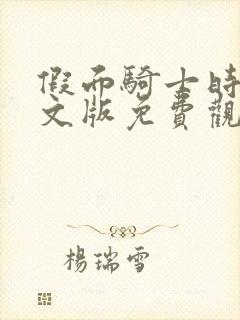 假面騎士時
文版免費觀
楊瑞雪